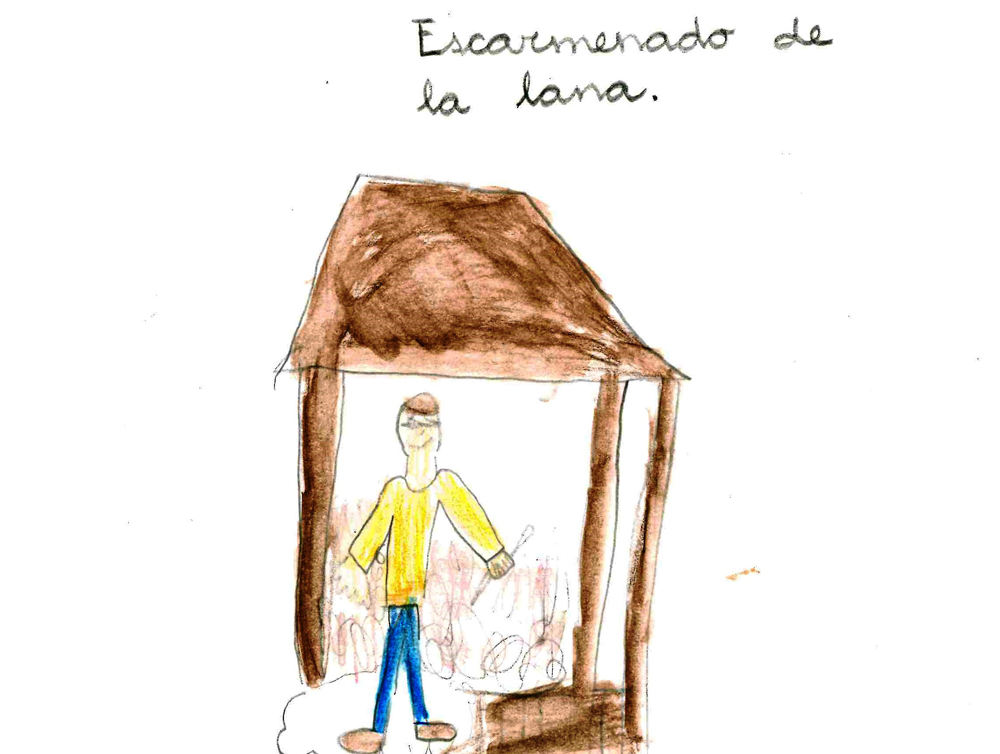 Escarmenado de
la lana.